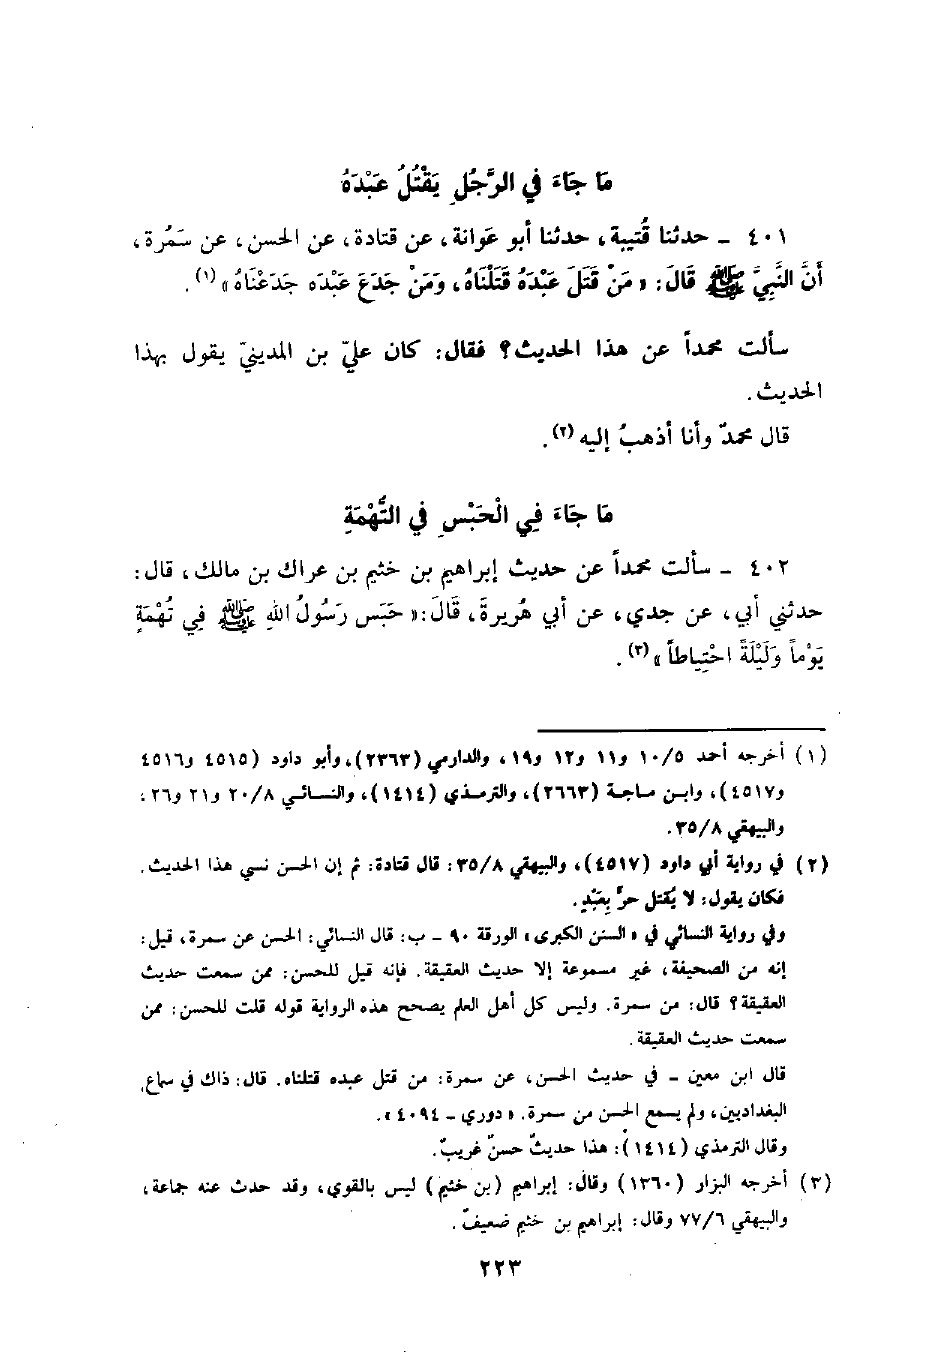 مَا جَاءَ في الرَّجُلِ يَقْتُلُ عَبْدَهُ
٤٠١ ـ حدثنا قُتيبة، حدثنا أبو عَوانة، عن قتادة، عن الحسن، عن سَمُرة،
أَنَّ النَّبِيَّ ﷺ قَالَ: « مَنْ قَتَلَ عَبْدَهُ قَتَلْنَاهُ، وَمَنْ جَدَعَ عَبْدَه جَدَعْنَاهُ » (١).
سألت محمداً عن هذا الحديث؟ فقال: كان عليّ بن المدينيّ يقول بهذا
الحديث.
قال محمدٌ وأنا أذهبُ إليه (٢).
مَا جَاءَ فِي الْحَبْسِ في التُّهْمَةِ
٤٠٢ ـ سألت محمداً عن حديث إبراهيم بن خثيم بن عراك بن مالك، قال:
حدثني أبي، عن جدي، عن أبي هُريرةَ، قَالَ: « حَبَس رَسُولُ اللهِ ﷺ فِي تُهْمَةٍ
يَوْماً وَلَيْلَةً احْتِياطاً » (٣).
(١) أخرجه أحمد ١٠/٥ و١١ و١٢ و١٩، والدارمي (٢٣٦٣)، وأبو داود (٤٥١٥ و٤٥١٦
و٤٥١٧)، وابن ماجة (٢٦٦٣)، والترمذي (١٤١٤)، والنسائي ٢٠/٨ و٢١ و٢٦،
والبيهقي ٣٥/٨.
(٢) في رواية أبي داود (٤٥١٧)، والبيهقي ٣٥/٨: قال قتادة: ثم إن الحسن نسي هذا الحديث.
فكان يقول: لا يُقتل حرٌّ بِعَبْدٍ.
وفي رواية النسائي في « السنن الكبرى » الورقة ٩٠ ـ ب: قال النسائي: الحسن عن سمرة، قيل:
إنه من الصحيفة، غير مسموعة إلا حديث العقيقة. فإنه قيل للحسن: ممن سمعت حديث
العقيقة؟ قال: من سمرة. وليس كل أهل العلم يصحح هذه الرواية قوله قلت للحسن: ممن
سمعت حديث العقيقة.
قال ابن معين ـ في حديث الحسن، عن سمرة: من قتل عبده قتلناه. قال: ذاك في سماع
البغداديين، ولم يسمع الحسن من سمرة. « دوري ـ ٤٠٩٤ ».
وقال الترمذي (١٤١٤): هذا حديثٌ حسنٌ غريبٌ.
(٣) أخرجه البزار (١٣٦٠) وقال: إبراهيم (بن خثيم) ليس بالقوي، وقد حدث عنه جماعة،
والبيهقي ٧٧/٦ وقال: إبراهيم بن خثيم ضعيفٌ.
٢٢٣